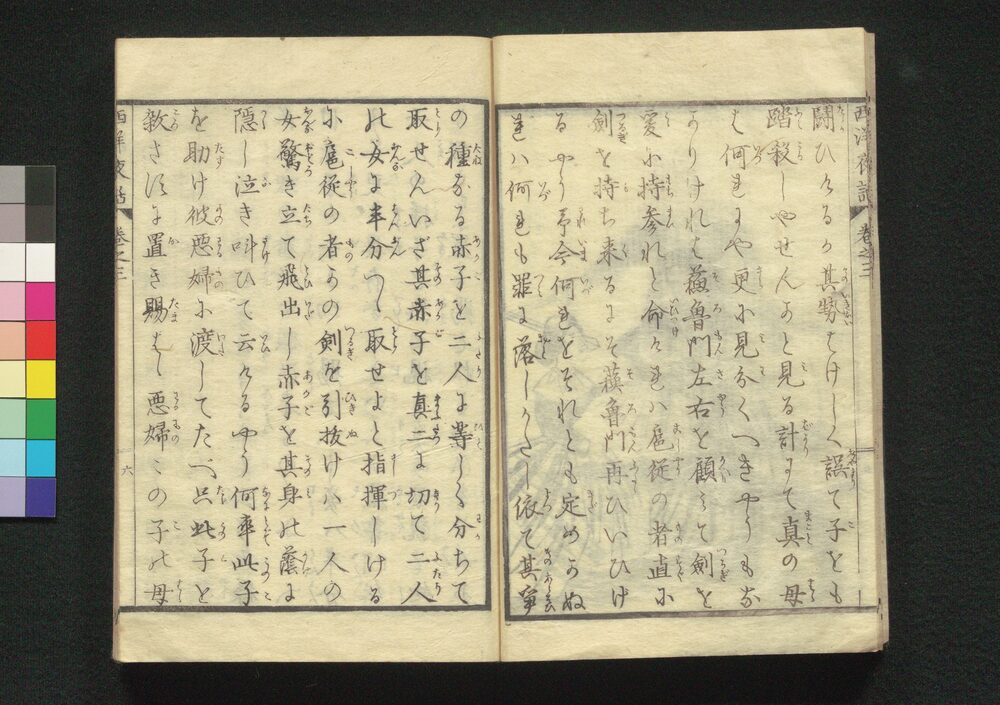 西洋夜話 巻之三
闘ひけるが其勢はけしく誤て子をも
踏殺しやせんかと見る計にて真の母
は何れにや更に見分くへきやうもな
かりけれは蘓魯門左右を顧みて剣を
爰に持参れと命けれハ扈従の者直に
剣を持ち来るにそ蘓魯門再ひいひけ
るやう命今何れをそれとも定めかぬ
れハ何れも罪に落しかたし依て其争
の種なる赤子を二人に等しく分ちて
取せんいざ其赤子を真二に切て二人
の女に半分つゝ取せよと指揮しける
に扈従の者かの剣を引抜けハ一人の
女驚き立て飛出し赤子を其身の蔭に
隠し泣き叫ひて云けるやう何率此子
を助け彼悪婦に渡してたべ只此子を
殺さすに置き賜はゝ悪婦この子の母
西洋夜話 巻之三 六